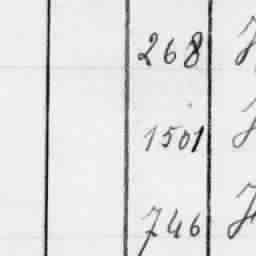 268
1501
746